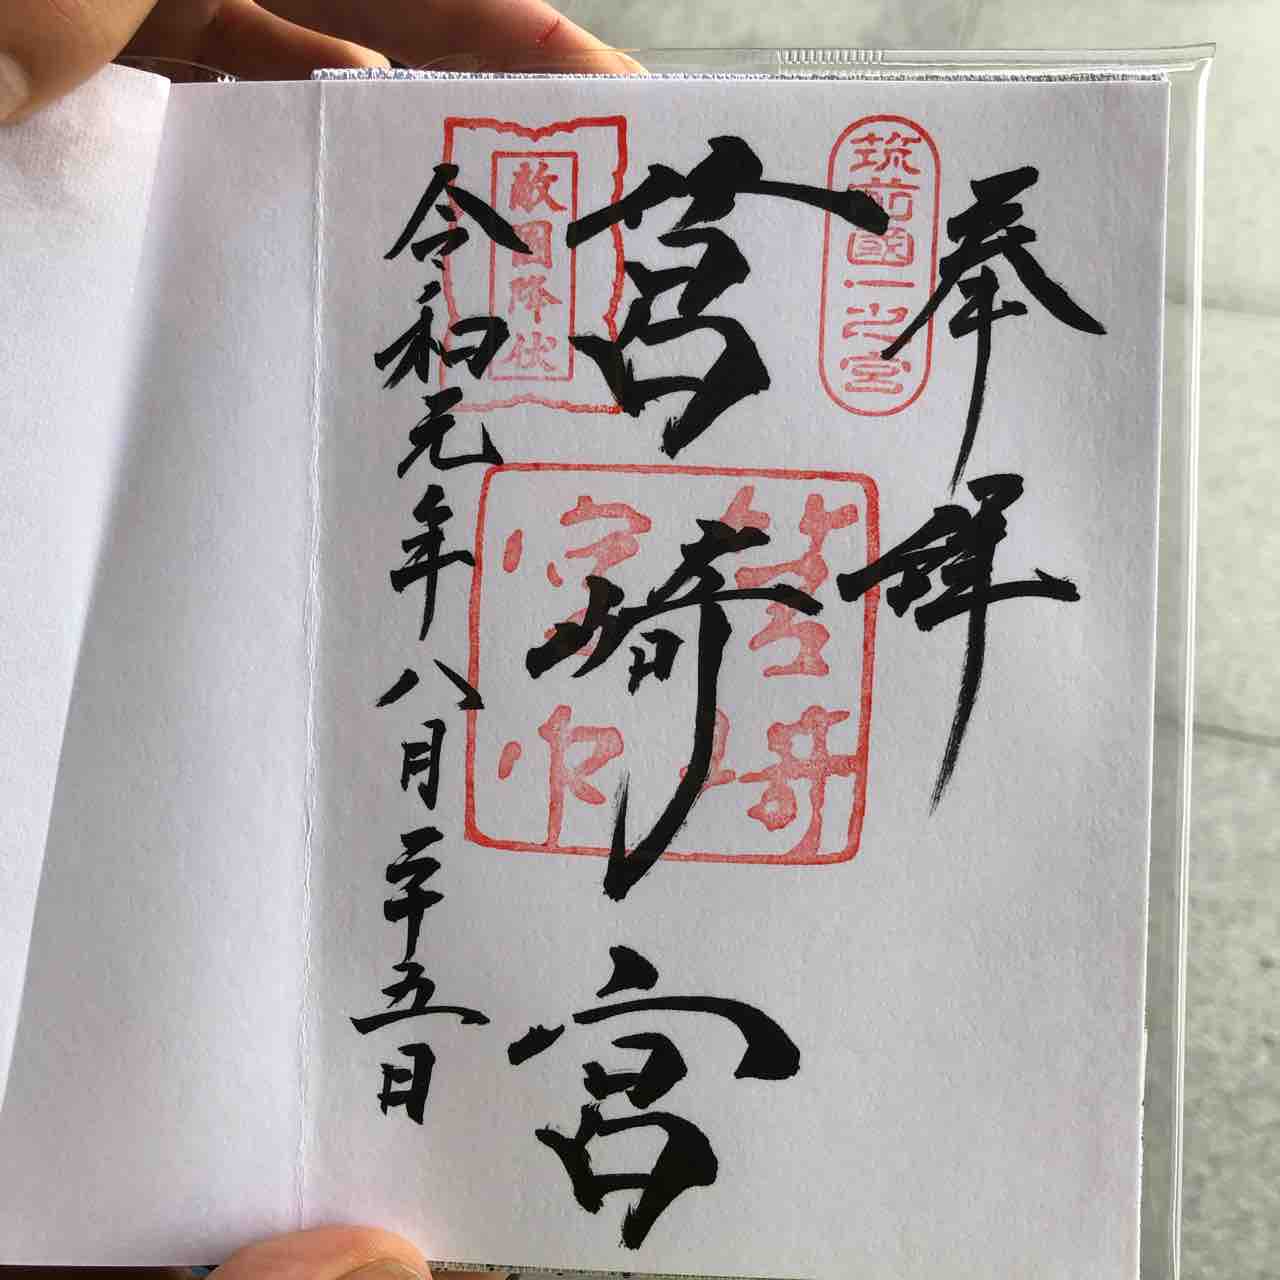 奉拝
筑前國一之宮
筥崎宮
敵国降伏
筥崎宮印
令和元年八月二十五日